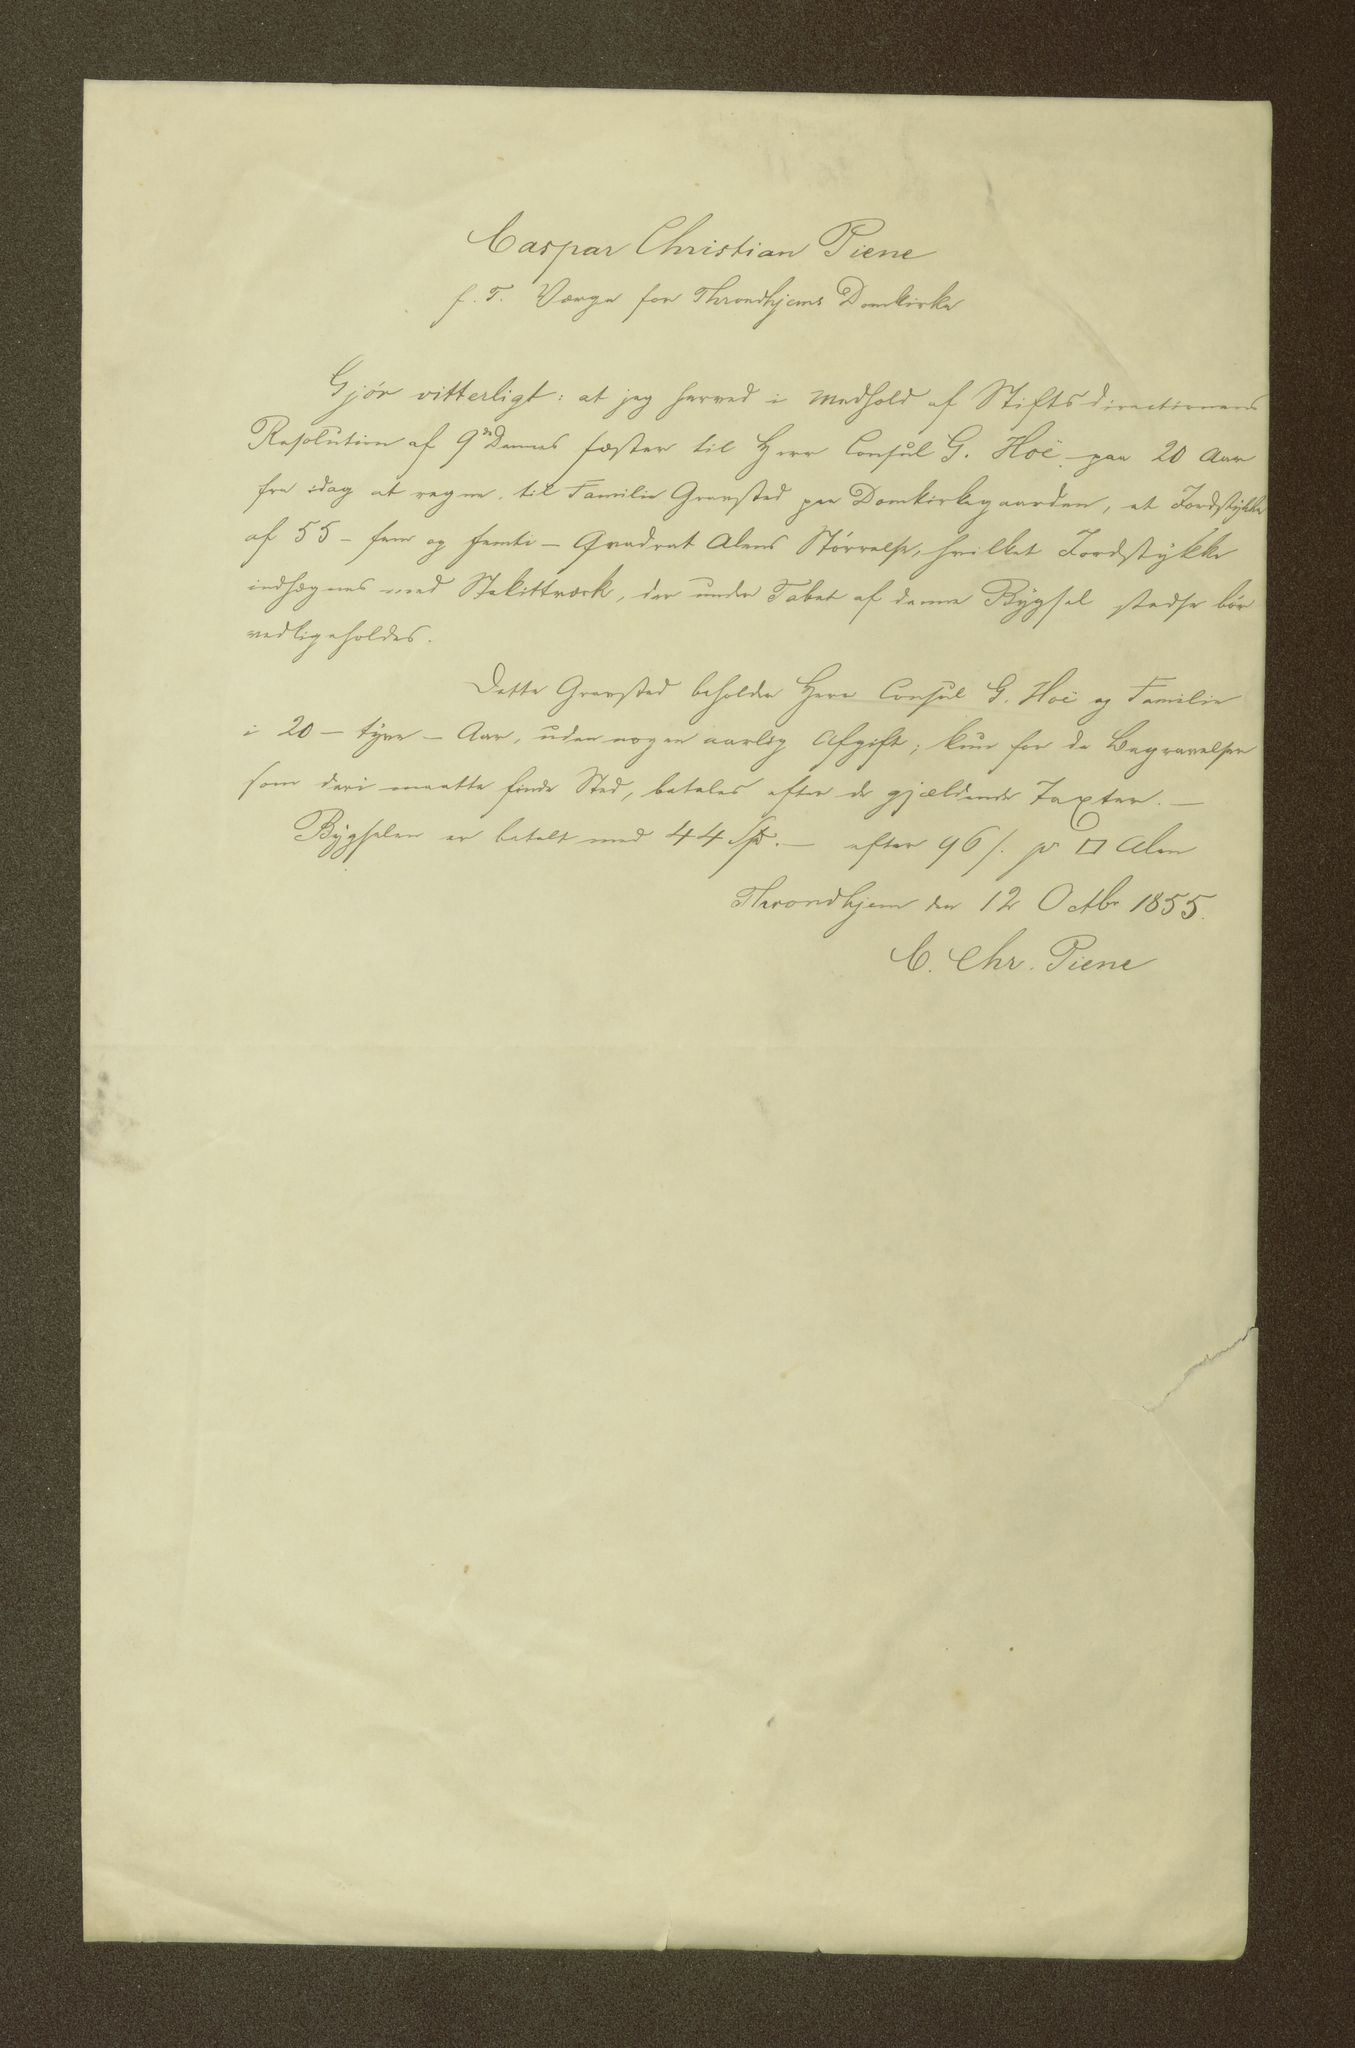 Caspar Christian Piene
f. T. Værge for Throndhjems Domkirke
Gjør vitterligt: at jeg herved i Medhold af Stiftsdirectionens
Resolution af 9de Dennes fæster til Herr Consul G. Hoë paa 20 Aar
fra idag at regne, til Familie Gravsted paa Domkirkegaarden, et Jordstykke
af 55 - fem og femti - Qvadrat Alens Størrelse, hvilket Jordstykke
indhegnes med Stakittværk, der under Tabet af denne Bygsel stedse bør
vedligeholdes.
Dette Gravsted beholder Herr Consul G. Hoë og Familie
i 20 - tyve - Aar, uden nogen aarlig Afgift; kun for de Begravelser
som deri maatte finde Sted, betales efter de gjældende Taxter. -
Bygselen er betalt med 44 Spd. - efter 96 s. pr □ Alen
Throndhjem den 12 Octbr 1855.
C. Chr. Piene